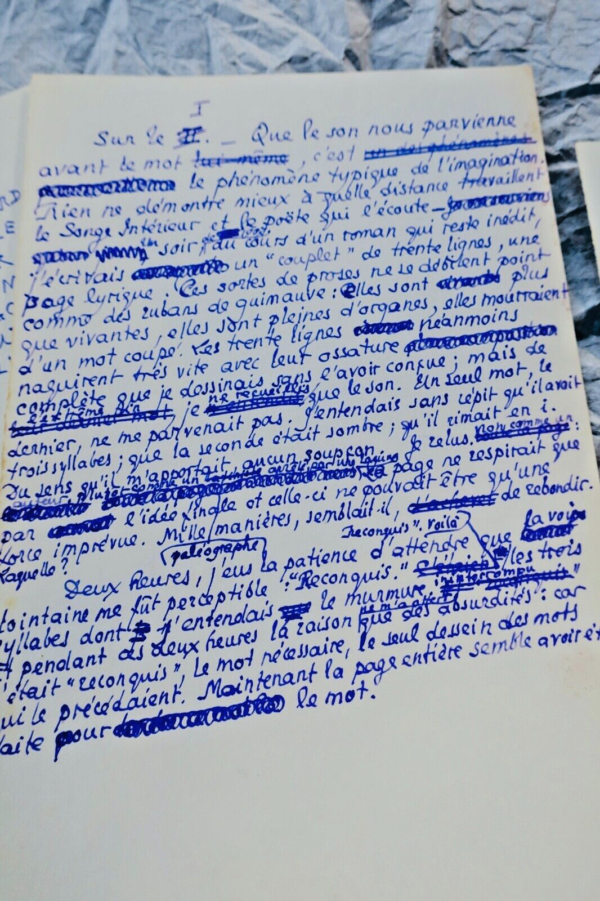 I
Sur le II. _ Que le son nous parvienne
avant le mot lui-même, c'est un des phénomènes
le phénomène typique de l'imagination.
Rien ne démontre mieux à quelle distance travaillent
le Songe Intérieur et le poëte qui l'écoute _
soir, au cours d'un roman qui reste inédit,
j'écrivais un "couplet" de trente lignes, une
page lyrique. Ces sortes de proses ne se débitent point
comme des rubans de guimauve : elles sont plus
que vivantes, elles sont pleines d'organes, elles mourraient
d'un mot coupé. Les trente lignes néanmoins
naquirent très vite avec leur ossature
complète que je dessinais sans l'avoir conçue ; mais de
je ne recueillis que le son. Un seul mot, le
dernier, ne me parvenait pas. J'entendais sans répit qu'il avait
trois syllabes, que la seconde était sombre ; qu'il rimait en i.
Du sens qu'il m'apportait, aucun soupçon. Je relus.
page ne respirait que
par l'idée finale et celle-ci ne pouvait être qu'une
force imprévue. Mille manières, semblait-il, de rebondir.
Laquelle?
(paléographe) "Reconquis", voilà
Deux heures, j'eus la patience d'attendre que la voix
lointaine me fût perceptible : "Reconquis." les trois
syllabes dont j'entendais le murmure interrompu
pendant ces deux heures la raison que des absurdités : car
c'était "reconquis", le mot nécessaire, le seul dessein des mots
qui le précédaient. Maintenant la page entière semble avoir été
faite pour le mot.